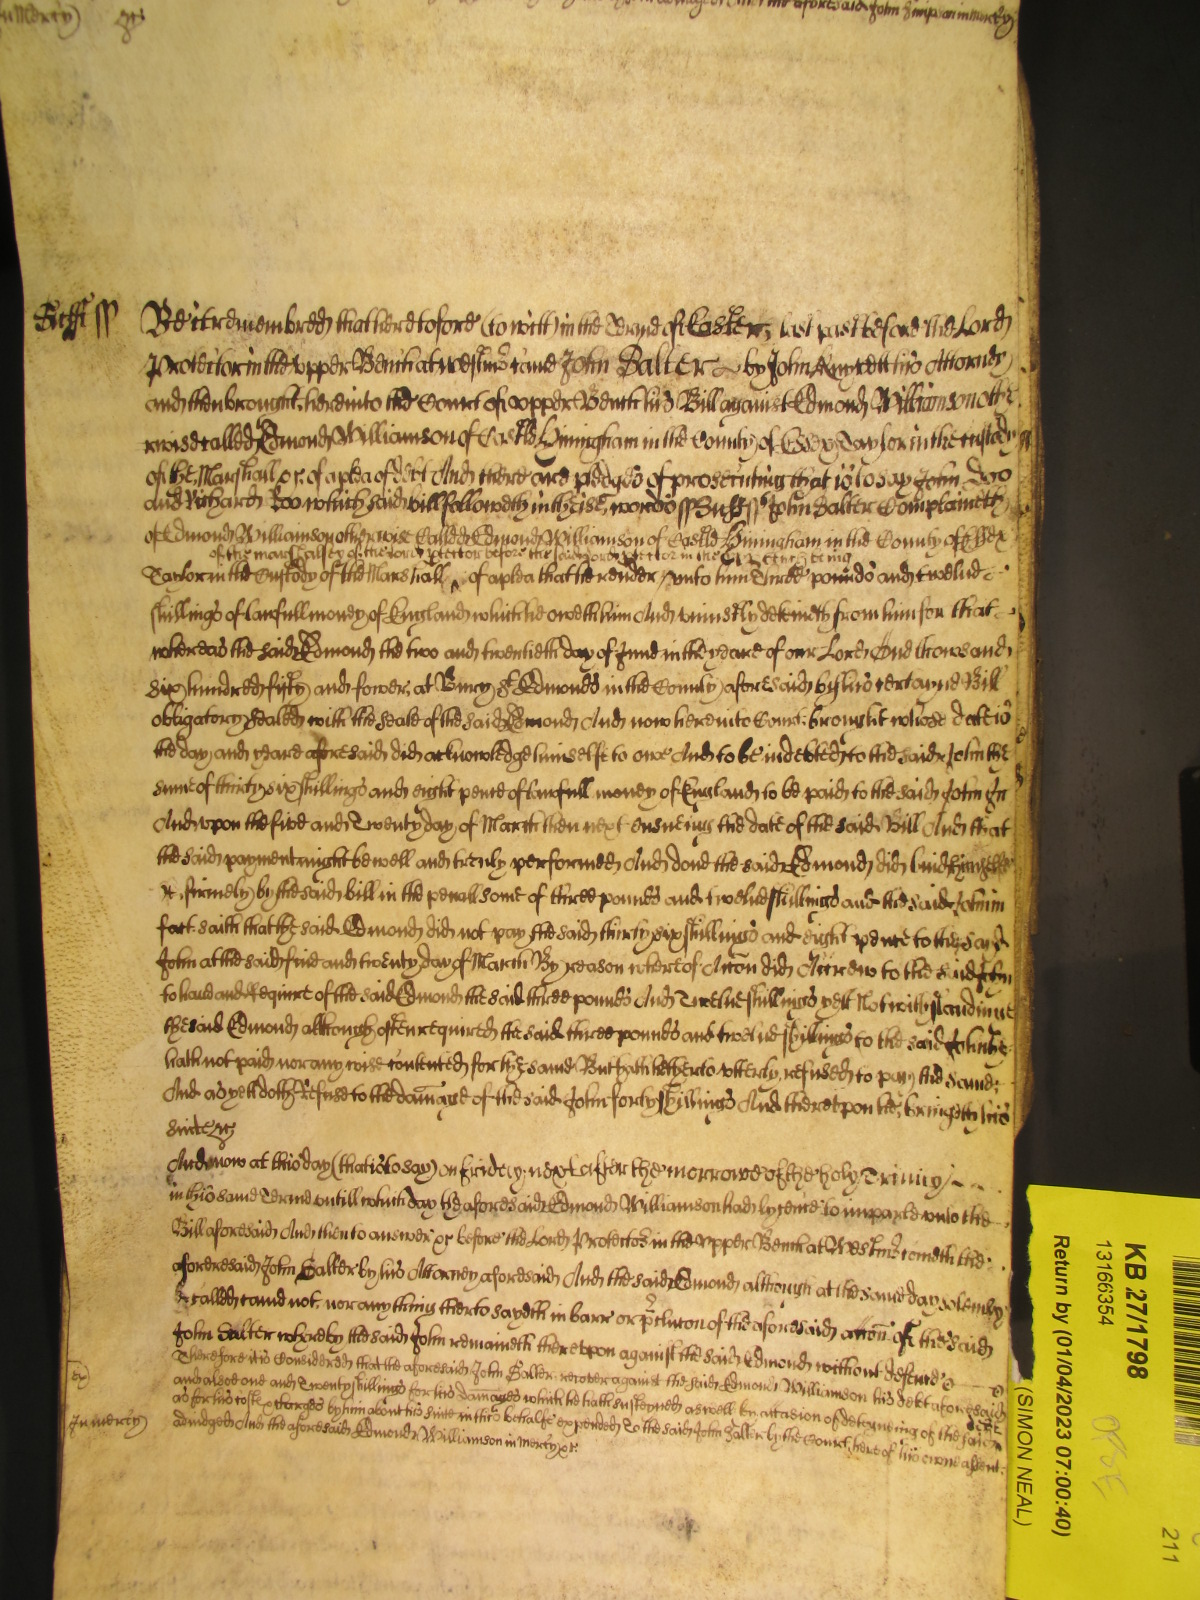 in Mercy &c
aforesaid John Simpson in mercy
Suff ss Be it remembred that heretofore (to witt) in the Terme of Easter last past before the Lord
Protector in the upper Bench at Westmr came John Salter by John his Attorney
and then brought here into the Court of upper Bench his Bill against Edmond Williamson other
wise called Edmond Williamson of Castle Hinningham in the County of Essex Taylor in the custody
of the Marshall &c of a plea of debt And there are pledges of prosecuting that is to say John Doo
and Richard Roo which said bill followeth in theise words ss Suff ss John Salter Complaineth
of Edmond Williamson otherwise Called Edmond Williamson of Castle Hinningham in the County of Essex
of the marshalsey of the Lord Protector before the said Lord Protector in the upper bench being
Taylor in the Custody of the Marshall of a plea that he render unto him Three pounds and twelve
shillings of lawfull money of England which he oweth him And uniustly deteineth from him for that
whereas the said Edmond the two and twentieth day of June in the yeare of our Lord One thowsand
six hundred fifty and fower at Bury St Edmonds in the County aforesaid by his certayne Bill
obligatory Sealed with the seale of the said Edmond And now here into Court brought whose date is
the day and yeare aforesaid did acknowledge himselfe to owe And to be indebted to the said John the
sume of thirty six shillings and eight pence of lawfull money of England to be paid to the said John In
And upon the five and Twenty day of March then next ensueing the date of the said Bill And that
the said payment might be well and truly performed And done the said Edmond did bind himselfe
&c firmely by the said bill in the penall some of three pounds and twelve shillings and the said John in
fact saith that the said Edmond did not pay the said thirty six shillings and eight pence to the said
John at the said five and twenty day of March By reason whereof Accon did Accrew to the said John
to have and Require of the said Edmond the said three pounds And Twelve shillings yett Notwithstandinge
the said Edmond although often required the said three pounds and twelve shillings to the said John he
hath not paid nor any wise contented for the same But hath hitherto utterly refused to pay the same
And as yett doth Refuse to the damage of the said John forty shillings And thereupon he bringeth his
suite &c
And now at this day (that is to say) on friday next after the morrowe of the holy Trinity
in this same Terme untill which day the aforesaid Edmond Williamson had lycence to imparle unto the
Bill aforesaid And then to answer &c before the Lord Protector in the upper Bench at Westmr cometh the
aforesaid John Salter by his Attorney aforesaid And the said Edmond although at the same day solemnly
called came not nor any thing therto sayeth in barr or preclucon of the aforesaid accon of the said
John Salter whereby the said John remaineth thereupon against the said Edmond without defence
Therefore it is Considered that the aforesaid John Salter recover against the said Edmond Williamson his debt aforesaid
and alsoe one and Twenty shillings for his damages which he hath susteyned as well by occasion of deteyneing of the said debt
as for his costs & charges by him about his suite in this behalfe expended To the said John Salter by the Court here of his owne assent
In mercy adiudged And the aforesaid Edmond Williamson in mercy &c
KB 27/1798
13166354
Return by (01/04/2023 07:00:40)
(SIMON NEAL)
211